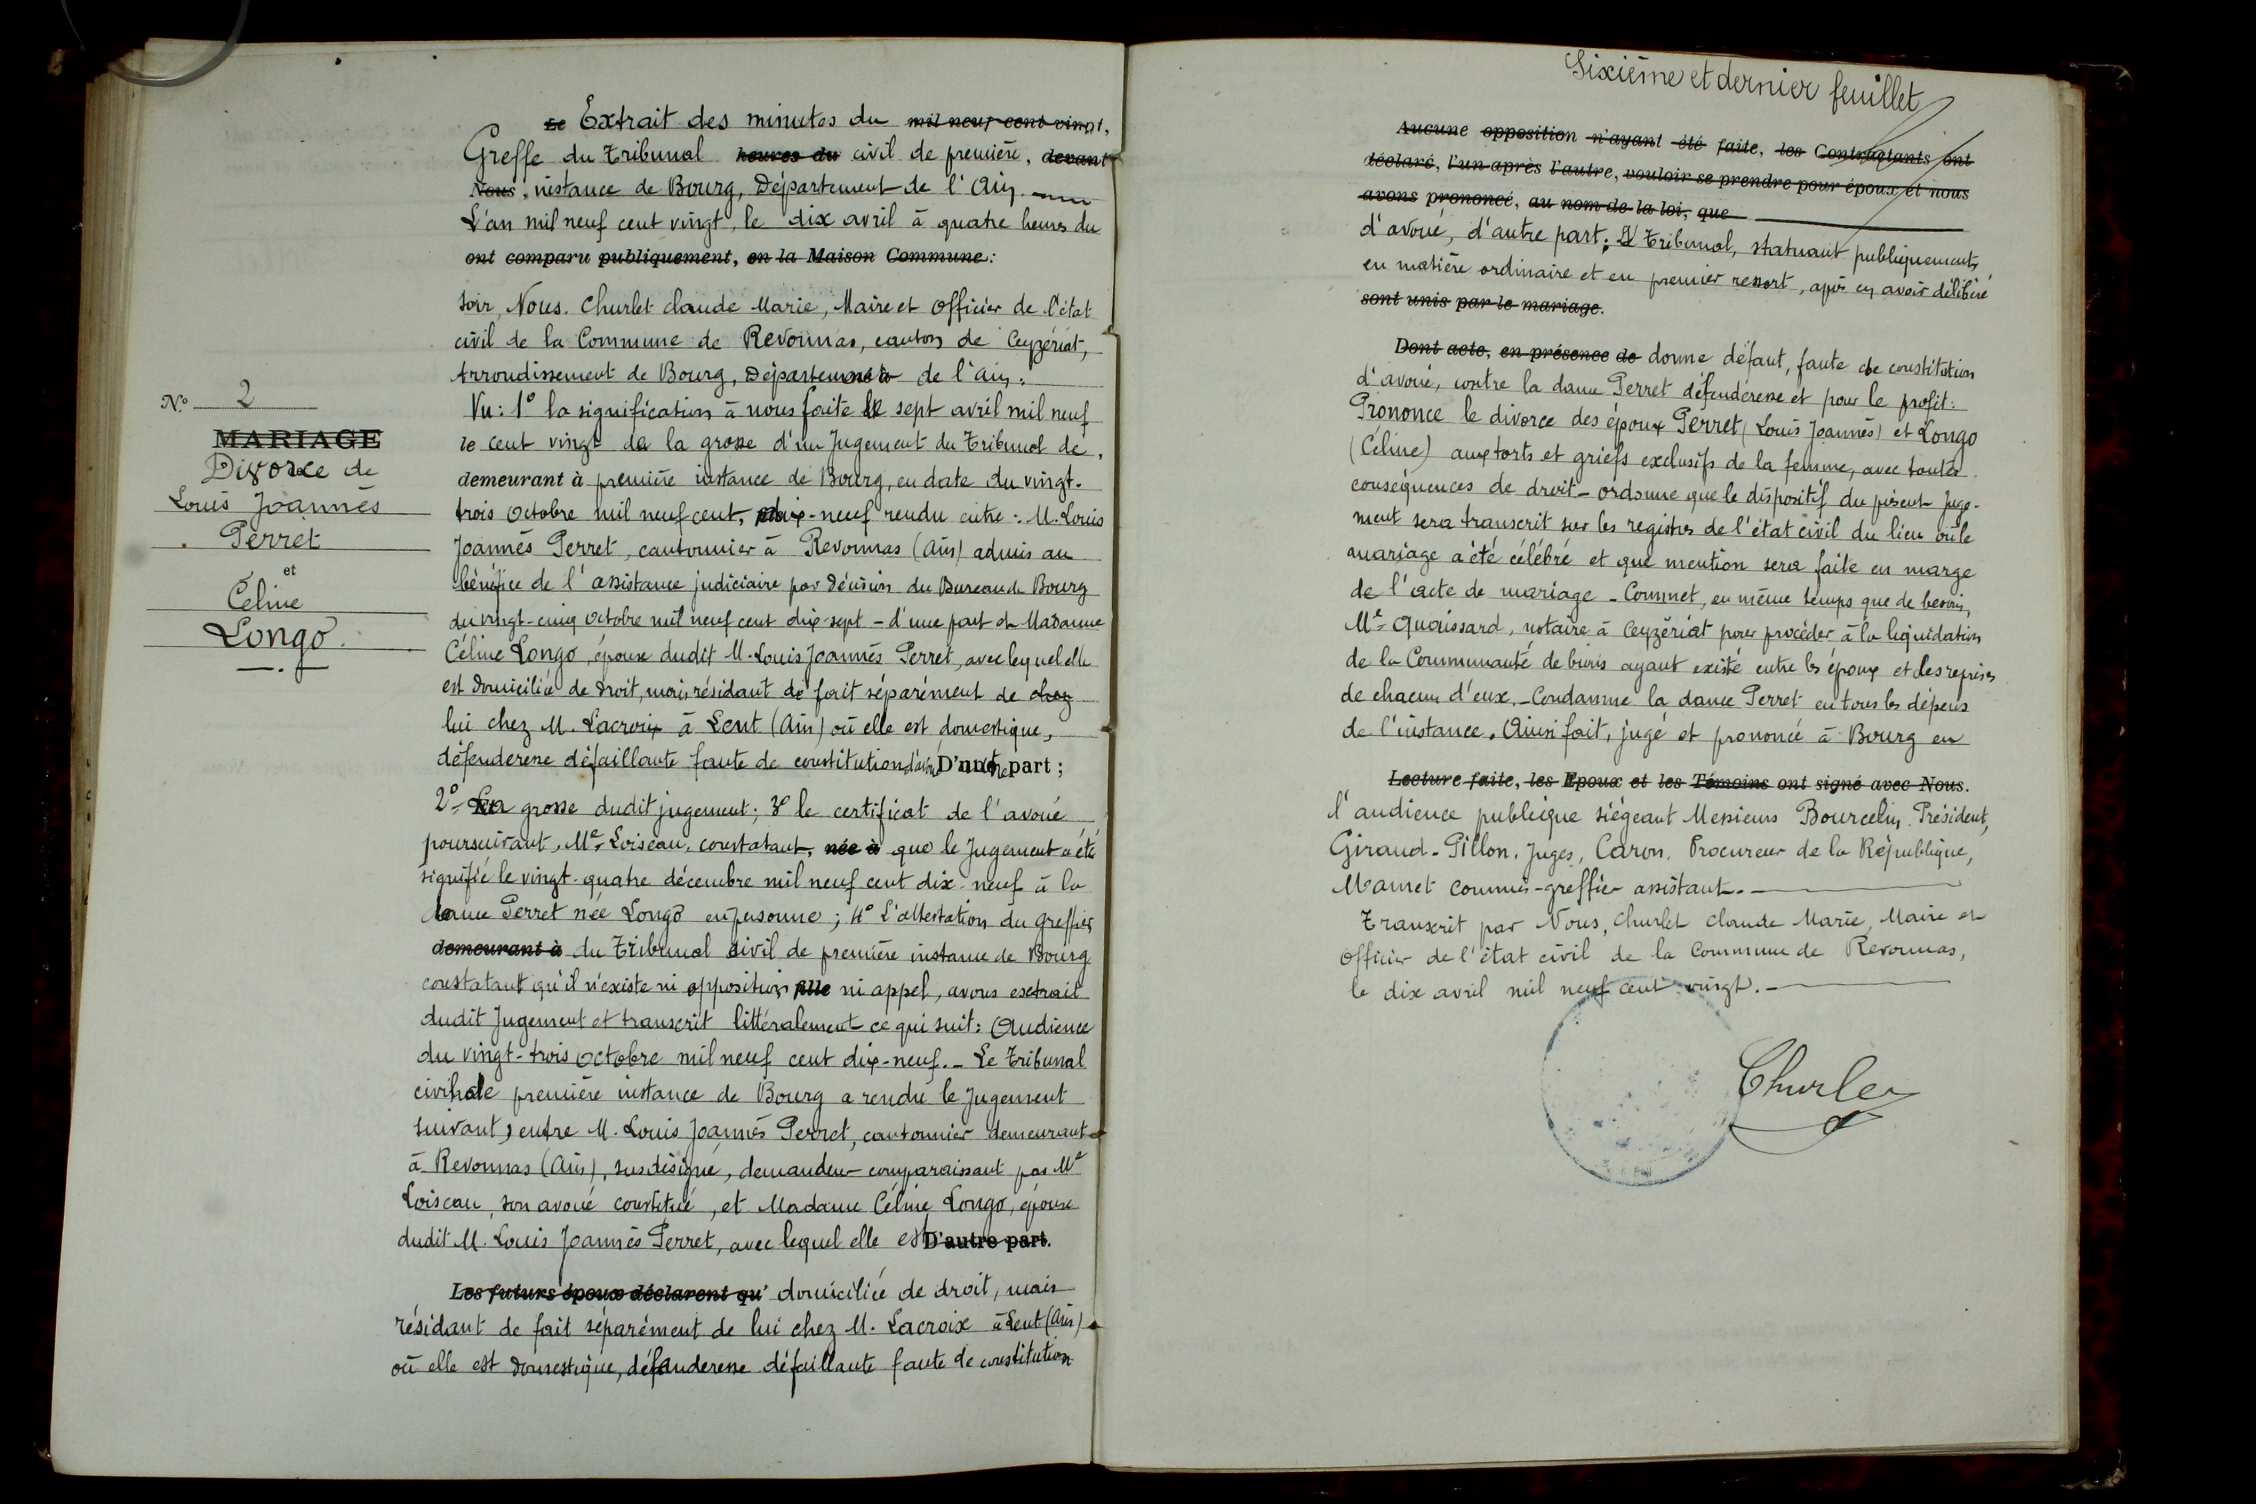 N.o 2
MARIAGE
Divorce de
Louis Joannès
Perret
et
Céline
Longo.
Le Extrait des minutes du mil neuf cent vingt,
Greffe du Tribunal heures du civil de première, devant
Nous, instance de Bourg, Département de l'Ain.
L'an mil neuf cent vingt, le dix avril à quatre heures du
ont comparu publiquement, en la Maison Commune:
soir, Nous. Churlet Claude Marie, Maire et Officier de l'état
civil de la Commune de Revonnas, canton de Ceyzériat,
Arrondissement de Bourg, Département de l'Ain:
Vu: 1° la signification à nous faite le sept avril mil neuf
le cent vingt de la grosse d'un Jugement du Tribunal de,
demeurant à première instance de Bourg, en date du vingt-
trois Octobre mil neuf cent, dix-neuf rendu entre: M. Louis
Joannès Perret, cantonnier à Revonnas (Ain) admis au
bénéfice de l'assistance judiciaire par décision du Bureau de Bourg
du vingt-cinq Octobre mil neuf cent dix-sept - d'une part et Madame
Céline Longo, épouse dudit M. Louis Joannès Perret, avec lequel elle
est domiciliée de droit, mais résidant de fait séparément de chez
lui chez M. Lacroix à Lent (Ain) où elle est domestique,
défenderesse défaillante faute de constitution d'avoué D'autre part;
2° La grosse dudit jugement; 3° le certificat de l'avoué
poursuivant, Me Loiseau, constatant, née à que le Jugement a été
signifié le vingt-quatre décembre mil neuf cent dix-neuf à la
dame Perret née Longo en personne; 4° L'attestation du greffier
demeurant à du Tribunal civil de première instance de Bourg
constatant qu'il n'existe ni opposition fille ni appel, avons extrait
dudit Jugement et transcrit littéralement ce qui suit: Audience
du vingt-trois Octobre mil neuf cent dix-neuf.- Le Tribunal
civil de première instance de Bourg a rendu le Jugement
suivant, entre M. Louis Joannès Perret, cantonnier demeurant
à Revonnas (Ain), susdésigné, demandeur comparaissant par Me
Loiseau, son avoué constitué, et Madame Céline Longo, épouse
dudit M. Louis Joannès Perret, avec lequel elle est D'autre part.
Les futurs époux déclarent qu' domiciliée de droit, mais
résidant de fait séparément de lui chez M. Lacroix à Lent (Ain)
où elle est domestique, défenderesse défaillante faute de constitution
Sixième et dernier feuillet
Aucune opposition n'ayant été faite, les Contractants ont
déclaré, l'un après l'autre, vouloir se prendre pour époux, et nous
avons prononcé, au nom de la loi, que
d'avoué, d'autre part; Le Tribunal, statuant publiquement,
en matière ordinaire et en premier ressort, après en avoir délibéré
sont unis par le mariage.
Dont acte, en présence de donne défaut, faute de constitution
d'avoué, contre la dame Perret défenderesse et pour le profit:
Prononce le divorce des époux Perret (Louis Joannès) et Longo
(Céline) aux torts et griefs exclusifs de la femme, avec toutes
conséquences de droit - ordonne que le dispositif du présent Juge-
ment sera transcrit sur les registres de l'état civil du lieu où le
mariage a été célébré et que mention sera faite en marge
de l'acte de mariage - Commet, en même temps que de besoin,
Me Quaissard, notaire à Ceyzériat pour procéder à la liquidation
de la Communauté de biens ayant existé entre les époux et des reprises
de chacun d'eux.- Condamne la dame Perret en tous les dépens
de l'instance. Ainsi fait, jugé et prononcé à Bourg en
Lecture faite, les Epoux et les Témoins ont signé avec Nous.
l'audience publique siégeant Messieurs Bourcelin. Président,
Giraud-Pillon. Juges, Caron. Procureur de la République,
Mamet commis-greffier assistant.
Transcrit par Nous, Churlet Claude Marie, Maire et
Officier de l'état civil de la Commune de Revonnas,
le dix avril mil neuf cent vingt.-
Churlet